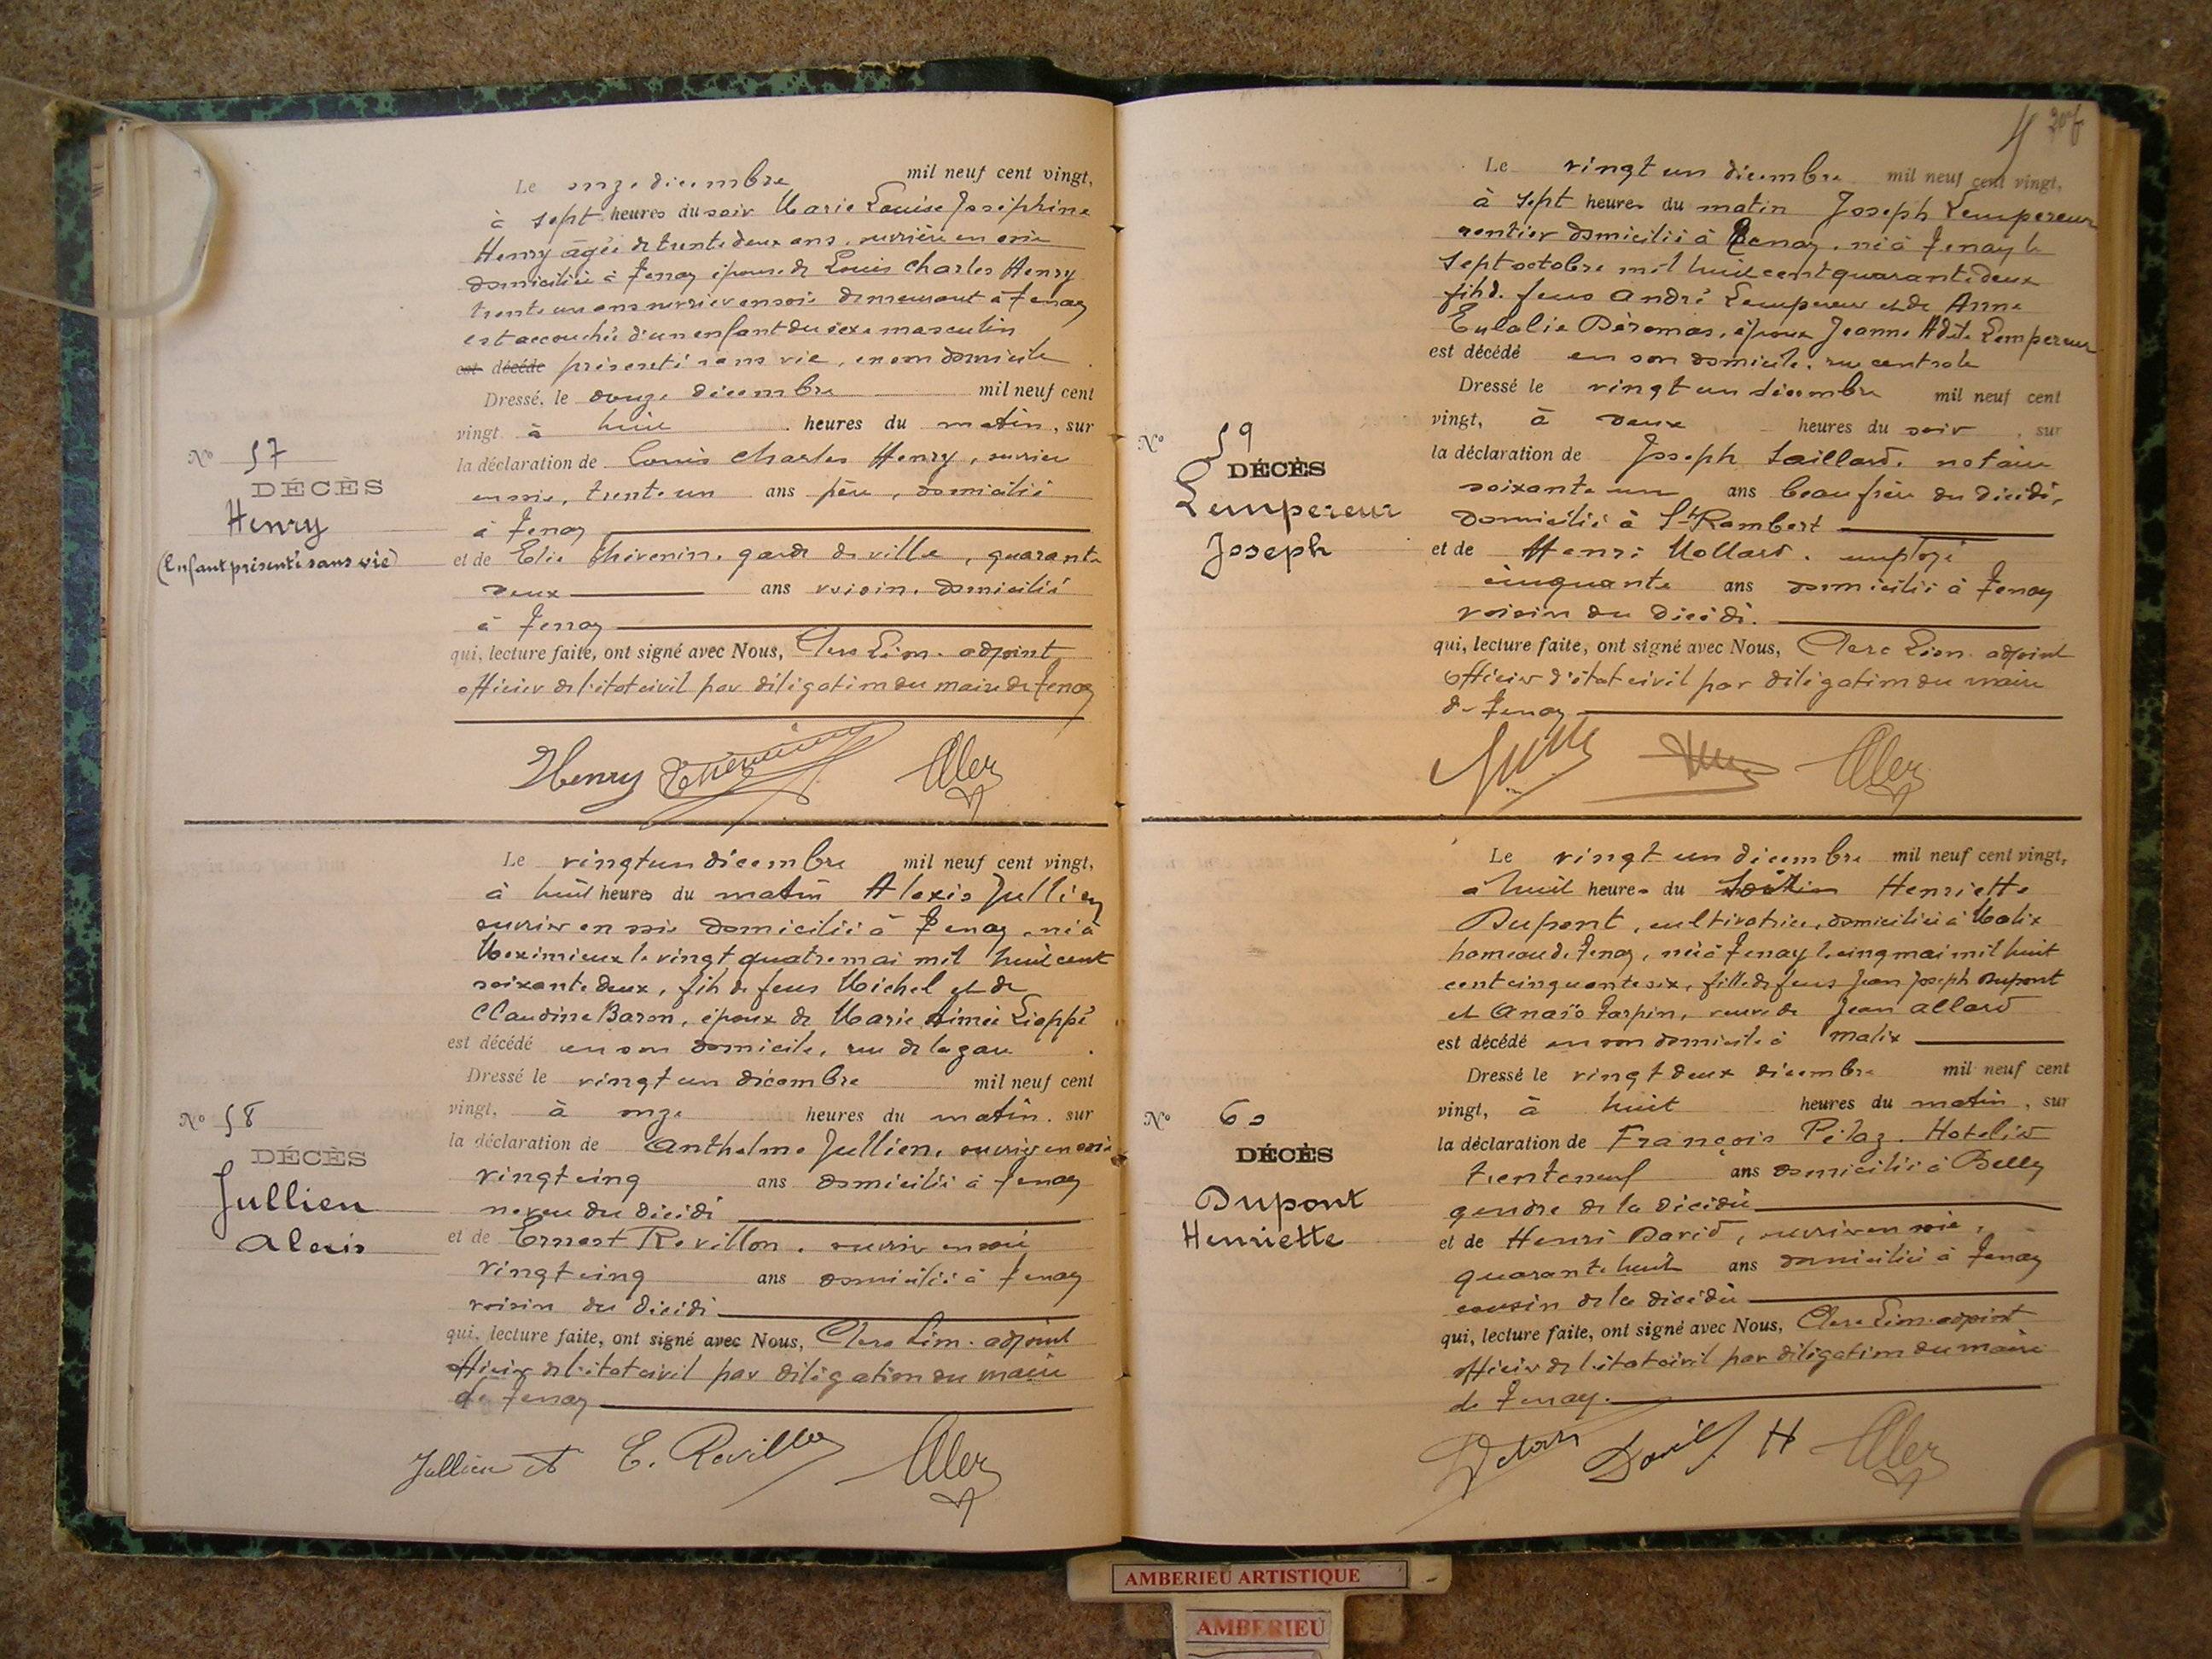 Le onze décembre mil neuf cent vingt,
à sept heures du soir Marie Louise Joséphine
Henry âgée de trente deux ans, ouvrière en soie
domiciliée à Tenay épouse de Louis Charles Henry
trente un ans ouvrier en soie demeurant à Tenay
est accouchée d'un enfant du sexe masculin
est décédé présenté sans vie, en son domicile
Dressé, le douze décembre mil neuf cent
vingt à huit heures du matin, sur
la déclaration de Louis Charles Henry, ouvrier
en soie, trente un ans père, domicilié
à Tenay
et de Elie Thévenin, garde de ville, quarante
deux ans voisin, domicilié
à Tenay
qui, lecture faite, ont signé avec Nous, Clerc Léon. adjoint
officier de l'état civil par délégation du maire de Tenay
Nº 57
DÉCÈS
Henry
(Enfant présenté sans vie)
Henry Thévenin
Le vingt un décembre mil neuf cent vingt,
à huit heures du matin Alexis Jullien
ouvrier en soie domicilié à Tenay, né à
Meximieux le vingt quatre mai mil huit cent
soixante deux, fils de feus Michel et de
Claudine Baron, époux de Marie Aimée Lioppé
est décédé en son domicile, rue de la gare
Dressé le vingt un décembre mil neuf cent
vingt, à onze heures du matin, sur
la déclaration de Anthelme Jullien, ouvrier en soie
vingt cinq ans domicilié à Tenay
neveu du décédé
et de Ernest Revillon, ouvrier en soie
vingt cinq ans domicilié à Tenay
voisin du décédé
qui, lecture faite, ont signé avec Nous, Clerc Léon. adjoint
officier de l'état civil par délégation du maire
de Tenay
Nº 58
DÉCÈS
Jullien
Alexis
Jullien A E. Revillon
Le vingt un décembre mil neuf cent vingt,
à sept heures du matin Joseph Lempereur
rentier domicilié à Tenay, né à Tenay le
sept octobre mil huit cent quarante deux
fils de feus André Lempereur et de Anne
Eulalie Déromas, époux Jeanne Adèle Lempereur
est décédé en son domicile, rue centrale
Dressé le vingt un décembre mil neuf cent
vingt, à deux heures du soir, sur
la déclaration de Joseph Saillard, notaire
soixante un ans beau frère du décédé,
domicilié à St Rambert
et de Henri Mollard, employé
cinquante ans domicilié à Tenay
voisin du décédé.
qui, lecture faite, ont signé avec Nous, Clerc Léon. adjoint
officier d'état civil par délégation du maire
de Tenay
Nº 59
DÉCÈS
Lempereur
Joseph
Le vingt un décembre mil neuf cent vingt,
à huit heures du Henriette
Dupont, cultivatrice, domiciliée à Malix
hameau de Tenay, née à Tenay le cinq mai mil huit
cent cinquante six, fille de feus Jean Joseph Dupont
et Anaïs Tarpin, veuve de Jean Allard
est décédé en son domicile à Malix
Dressé le vingt deux décembre mil neuf cent
vingt, à huit heures du matin, sur
la déclaration de François Pélaz. Hotelier
trente neuf ans domicilié à Belley
gendre de la décédée
et de Henri David, ouvrier en soie,
quarante huit ans domicilié à Tenay
cousin de la décédée
qui, lecture faite, ont signé avec Nous, Clerc Léon. adjoint
officier de l'état civil par délégation du maire
de Tenay.
Nº 60
DÉCÈS
Dupont
Henriette
David H
AMBERIEU ARTISTIQUE
AMBERIEU